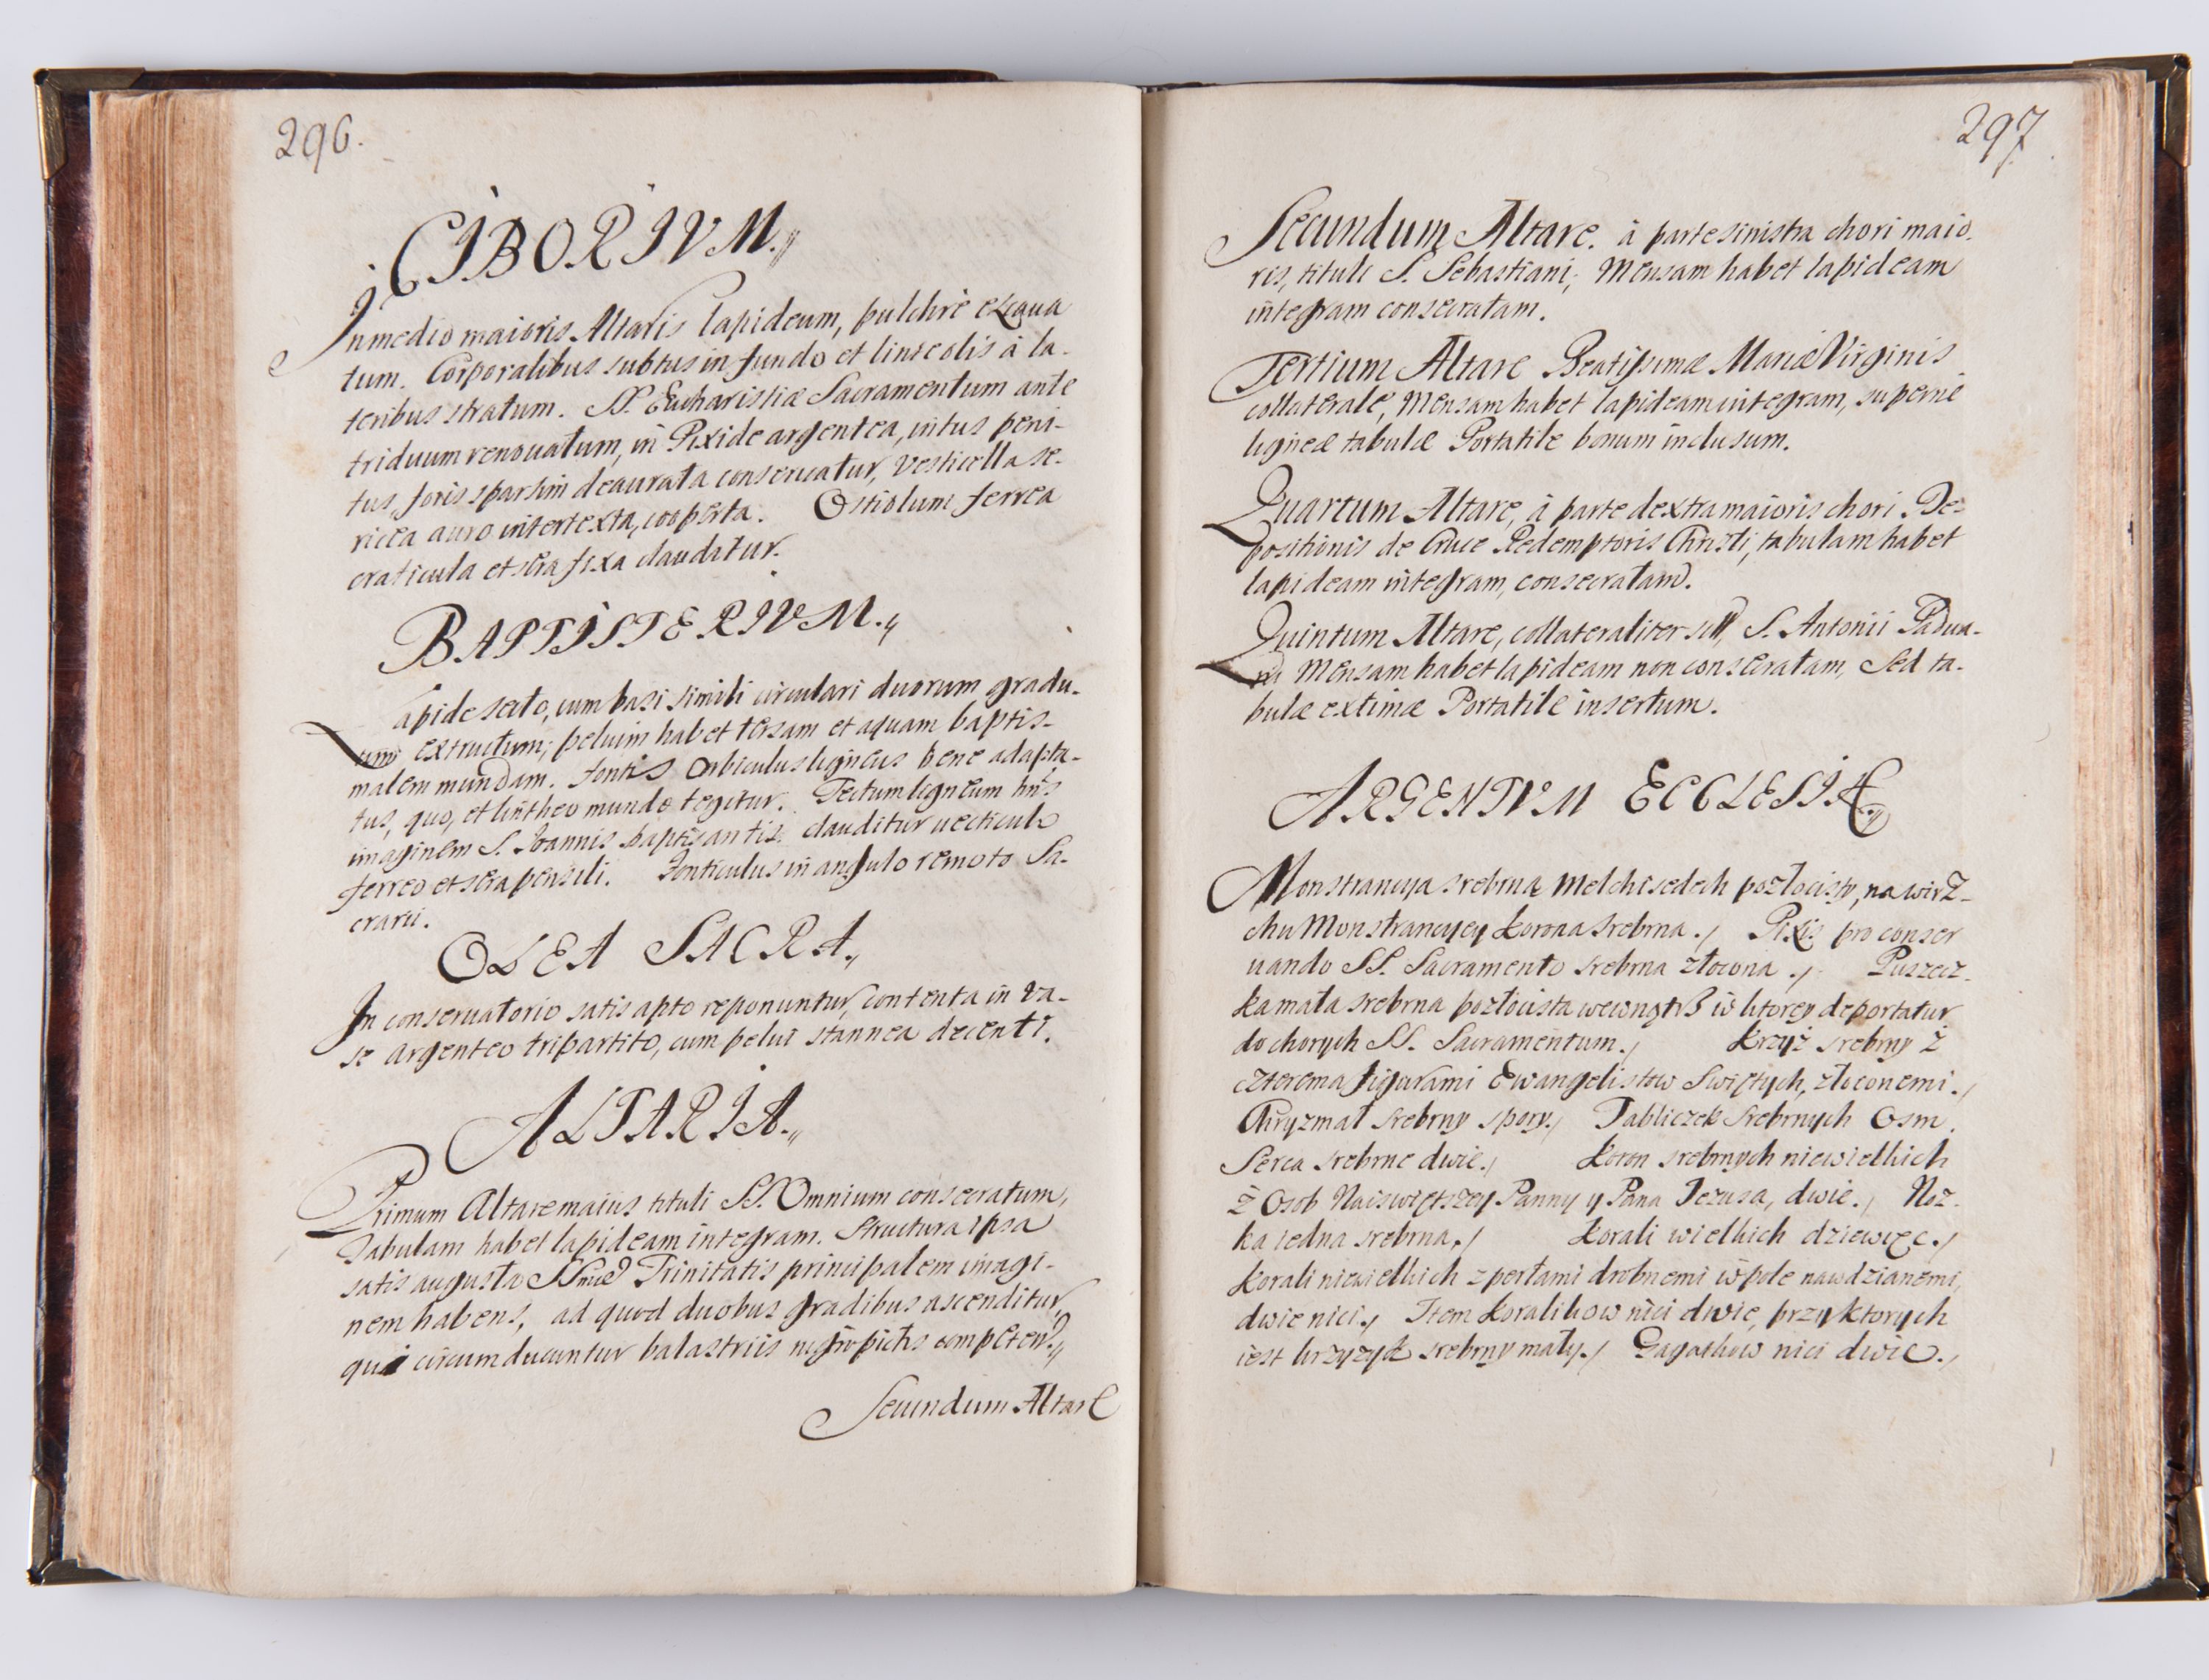 296.
CIBORIVM.
In medio maioris Altaris lapideum, pulchrè exca͠ua
tum. Corporalibus subtus in fundo et linteolis à la-
teribus stratum. SS. Eucharistiæ Sacramentum ante
triduum renouatum, in Pixide argentea, intus peni-
tus, foris sparsim deaurata conseruatur, vesticella se-
ricea auro intertexta, cooperta. Ostiolum ferrea
craticula et sera fixa clauditur.
BAPTISTERIVM.
Lapide secto, cum basi simili circulari duorum gradu-
um, extructum; peluim habet tersam et aquam baptis-
malem mundam. Fontis Orbiculus ligneus bene adapta-
tus, quo, et lintheo mundo tegitur. Tectum ligneum hñs
imaginem S. Joannis baptisantis. clauditur uecticulo
ferreo et sera pensili. Fonticulus in angulo remoto Sa-
crarii.
OLEA SACRA.
In conseruatorio satis apto reponuntur, contenta in va-
se argenteo tripartito, cum pelui stannea decenti.
ALTARIA.
Primum Altare maius tituli SS. Omnium consecratum,
Tabulam habet lapideam integram. Structura ipsa
satis augusta SSmæ Trinitatis principalem imagi-
nem habens, ad quod duobus gradibus ascenditur,
qui circumducuntur balastriis nigro pictis competen͠.
Secundum Altare
297
Secundum Altare. à parte sinistra chori maio-
ris, tituli S. Sebastiani, Mensam habet lapideam
integram consecratam.
Tertium Altare Beatissimæ Mariæ Virginis
collaterale, Mensam habet lapideam integram, supernè
ligneæ tabulæ Portatile bonum inclusum.
Quartum Altare, à parte dextra maioris chori De-
positionis de Cruce Redemptoris Christi, tabulam habet
lapideam integram, consecratam.
Quintum Altare, collateraliter S. Antonii Padua-
ni Mensam habet lapideam non consecratam, Sed ta-
bulæ extimæ Portatile insertum.
ARGENTVM ECCLESIÆ
Monstrancya srebrna Melchisedech pozłocisty, na wirz-
chu Monstrancyey korona srebrna. Pixis pro conser
uando SS. Sacramento srebrna złocona. Puszecz-
ka mała srebrna pozłocista wewnątrz w ktorey deportatur
do chorych SS. Sacramentum. Krzyż srebrny z
czterema figurami Ewangelistow Swiętych, złoconemi.
Chryzmał srebrny spory. Tabliczek srebrnych Osm.
Serca srebrne dwie. Koron srebrnych niewielkich
z Osob Naiswiętszey Panny y Pana Jezusa, dwie. Noz-
ka iedna srebrna. Korali wielkich dziewięc.
Korali niewielkich z perłami drobnemi wpole nawdzianemi,
dwie nici. Item koralikow nici dwie, przy ktorych
iest krzyzyk srebrny mały. Gagatkow nici dwie.